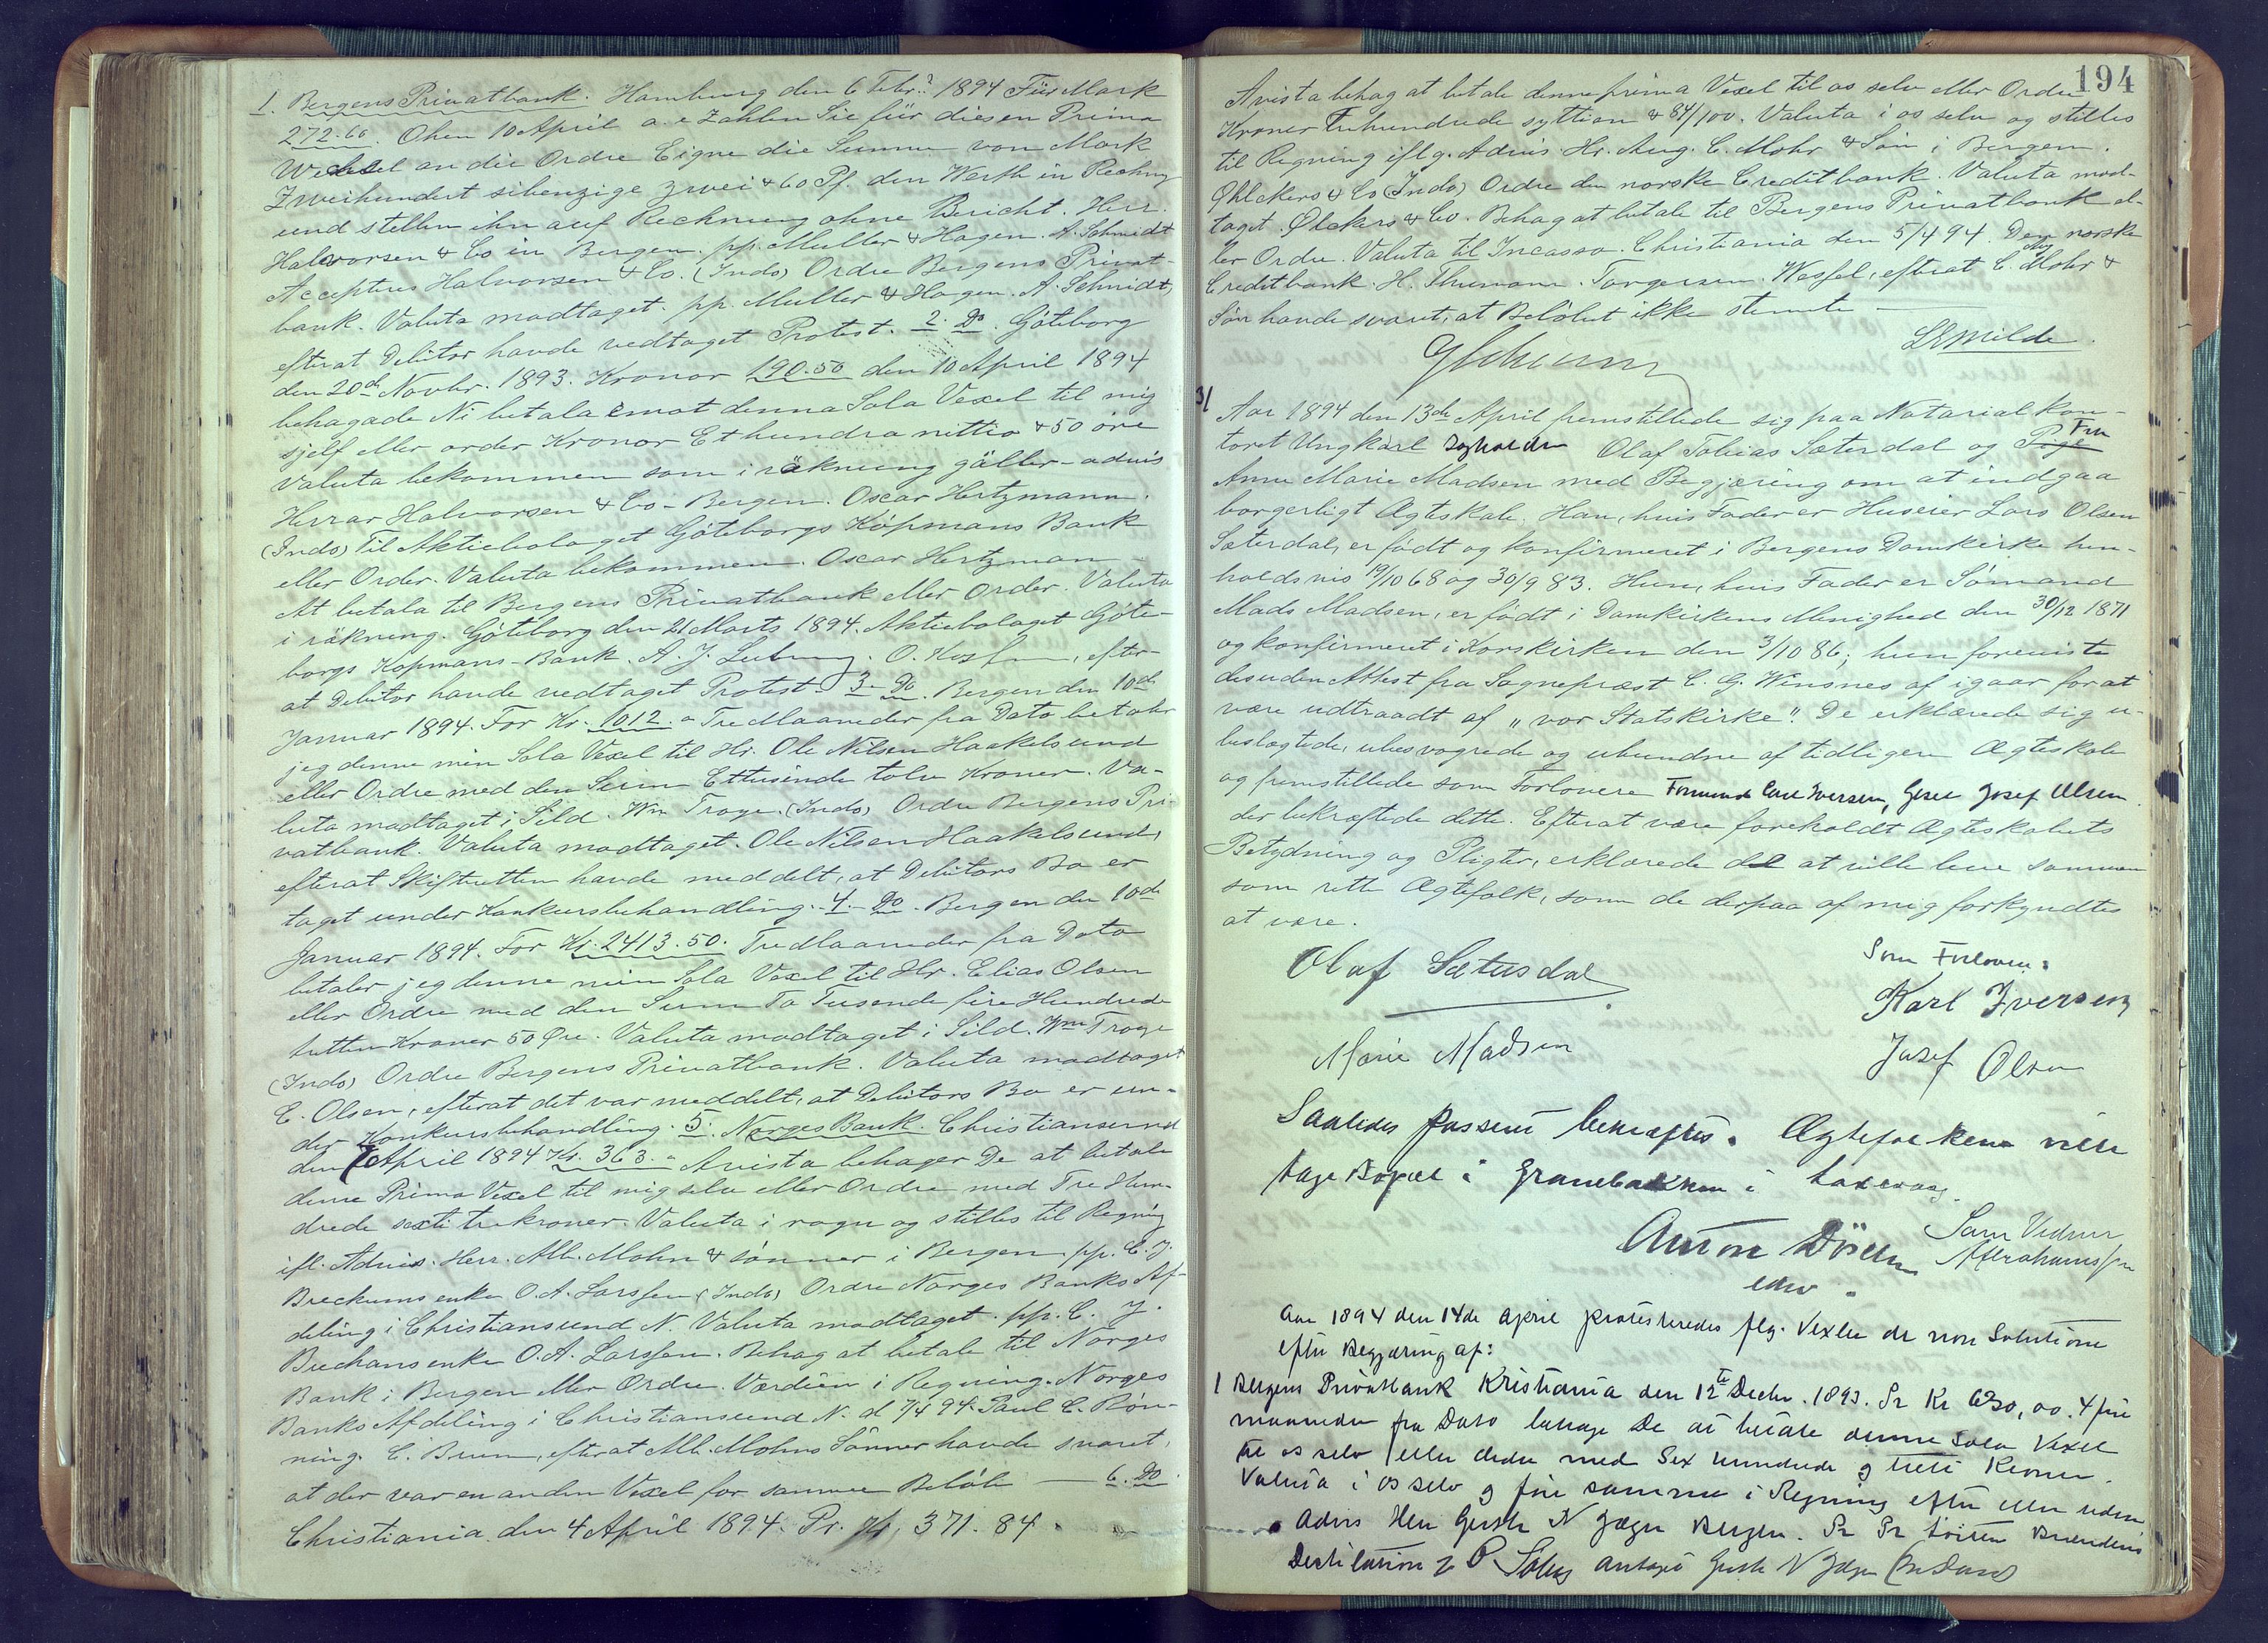 1. Bergens Privatbank. Hamburg den 6 Febr. 1894 Für Mark
272.60. Ohen 10 April a. c. Zahlen Sie für diesen Prima
Wechsel an die Ordre Eigne die Summe von Mark
Zweihundert sibenzige zwei & 60 Pf. den Werth in Rechng
und stellen ihn auf Rechnung ohne Bericht. Herr.
Halvorsen & Co in Bergen. pp. Muller & Hagen. A. Schmidt
Acceptres Halvorsen & Co. (Indo) Ordre Bergens Privat-
bank. Valuta modtaget. pp. Muller & Hagen. A. Schmidt,
efterat Debitor havde vedtaget Protest. 2. Do. Göteborg
den 20de Novbr. 1893. Kronor 190.50 den 10 April 1894
behagade Ni betala emot denna Sola Vexel til mig
sjelf eller order Kronor Ethundra nittio & 50 öre
Valuta bekommen som i räkning gäller - advis
Herrar Halvorsen & Co - Bergen. Oscar Hertzmann.
(Indo) Til Aktiebolaget Göteborgs Köpmans Bank
eller Order. Valuta bekommen. Oscar Hertzman
At betala til Bergens Privatbank eller Order. Valuta
i räkning. Göteborg den 21 Marts 1894. Aktiebolaget Göte-
borgs Kopmans-Bank. A. J. O. , efter-
at Debitor havde vedtaget Protest. 3. Do. Bergen den 10de
Januar 1894. For Kr. 1012. " Tre Maaneder fra Dato betaler
jeg denne min Sola Vexel til Hr. Ole Nilsen Haakelsund
eller Ordre med den Sum Ettusinde tolv Kroner. Va-
luta modtaget i Sild. Wm Troye. (Indo) Ordre Bergens Pri
vatbank. Valuta modtaget. Ole Nilsen Haakelsund,
efterat Skifteretten havde meddelt, at Debitors Bo er
taget under Konkursbehandling. 4. Do. Bergen den 10de
Januar 1894. For Kr. 2413.50. Tre Maaneder fra Dato
betaler jeg denne min Sola Vexel til Hr. Elias Olsen
eller Ordre med den Sum To Tusende fire Hundrede
tretten Kroner 50 Øre. Valuta modtaget i Sild. Wm Troye
(Indo) Ordre Bergens Privatbank. Valuta modtaget
E. Olsen, efterat det var meddelt, at Debitors Bo er un-
der Konkursbehandling. 5. Norges Bank. Christianssund
den 7 April 1894 Kr. 363. " Avista behager De at betale
denne Prima Vexel til mig selv eller Ordre med Tre Hun-
drede sexti tre kroner. Valuta i regn og stilles til Regning
ifl. Advis. Herr. Alb. Mohn & sønner i Bergen pp. C. J.
Breckums enke O. A. Larssen (Indo) Ordre Norges Banks Af-
deling i Christianssund N. Valuta modtaget. pp. C. J.
Brechans enke O. A. Larssen. Behag at betale til Norges
Bank i Bergen eller Ordre. Værdien i Regning. Norges
Banks Afdeling i Christianssund N. d 7/4 94. Paul C. Røn-
ning. C. Brun, efterat Alb. Mohns Sønner havde svaret,
at der var en anden Vexel for samme Beløb — 6. Do
Christiania den 4 April 1894. Pr. Kr. 371.84
194
Avista behag at betale denne prima Vexel til os selv eller Ordre
Kroner Trehundrede syttien & 84/100. Valuta i os selv og stilles
til Regning iflg. Advis. Hr. Aug. C. Mohr & Søn i Bergen.
Øhlckers & Co (Indo) Ordre den norske Creditbank. Valuta mod-
taget. Ølckers & Co. Behag at betale til Bergens Privatbank el-
ler Ordre. Valuta til Incasso. Christiania den 5/4 94. Den norske
Creditbank. H. Thurmann. Torgersen. Wessel, efterat C. Mohr &
Søn havde svaret, at Beløbet ikke stemte —
SEMilde.
31
Aar 1894 den 13de April fremstillede sig paa Notarialkon-
toret Ungkarl Olaf Tobias Sæterdal og Pige Fru
Anne Marie Madsen med Begjæring om at indgaa
borgerligt Ægteskab. Han, hvis Fader er Huseier Lars Olsen
Sæterdal, er født og konfirmeret i Bergens Domkirke hen-
holdsvis 19/10 68 og 30/9 83. Hun, hvis Fader er Sømand
Mads Madsen, er født i Domkirkens Menighed den 30/12 1871
og konfirmeret i Korskirken den 3/10 86; hun foreviste
desuden Attest fra Sognepræst C. G. Winsnes af igaar for at
være udtraadt af "vor Statskirke". De erklærede sig u-
beslægtede, ubesvogrede og ubundne af tidligere Ægteskab
og fremstillede som Forlovere Formand Carl Iversen, Gesel Josef Olsen
der bekræftede dette. Efterat være foreholdt Ægteskabets
Betydning og Pligter, erklærede de at ville leve sammen
som rette Ægtefolk, som de derpaa af mig forkyndtes
at være.
Olaf Sætersdal
Som Forlovere:
Karl Iversen
Marie Madsen
Josef Olsen
Saaledes passeret bekræftes. Ægtefolkene ville
tage Bopæl i Granebakken i Laxevaag.
Anton
Som Vidner
Abrahamsen
Aar 1894 den 14de April protesteredes flg. Vexler de non Solutione
efter Begjæring af:
1 Bergens Privatbank Kristiania den 12te Decbr. 1893. Pr Kr 630,00. 4 fire
maaneder fra Dato behage De at betale denne Sola Vexel
til os selv eller Ordre med Sex Hundrede og treti Kroner.
Valuta i os selv og føre samme i Regning efter eller uden
Advis Herr Gerh N Jæger Bergen. Pr Pr Løiten Brænderis
Destilation antaget Gerh N Jæger